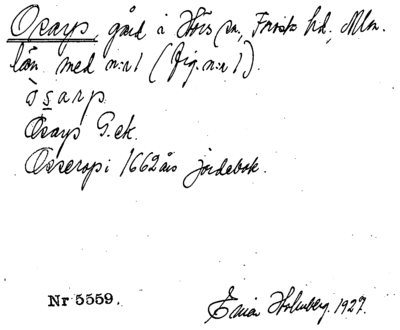 Osarp gård i Hörs sn, Frosta hd, Mlm.
län med n:r 1 (fig. n:r 1).
ò s̲ a r p
Osarp G. ek.
Osserop i 1662 års jordebok.
Nr 5559.
Holmberg. 1927.